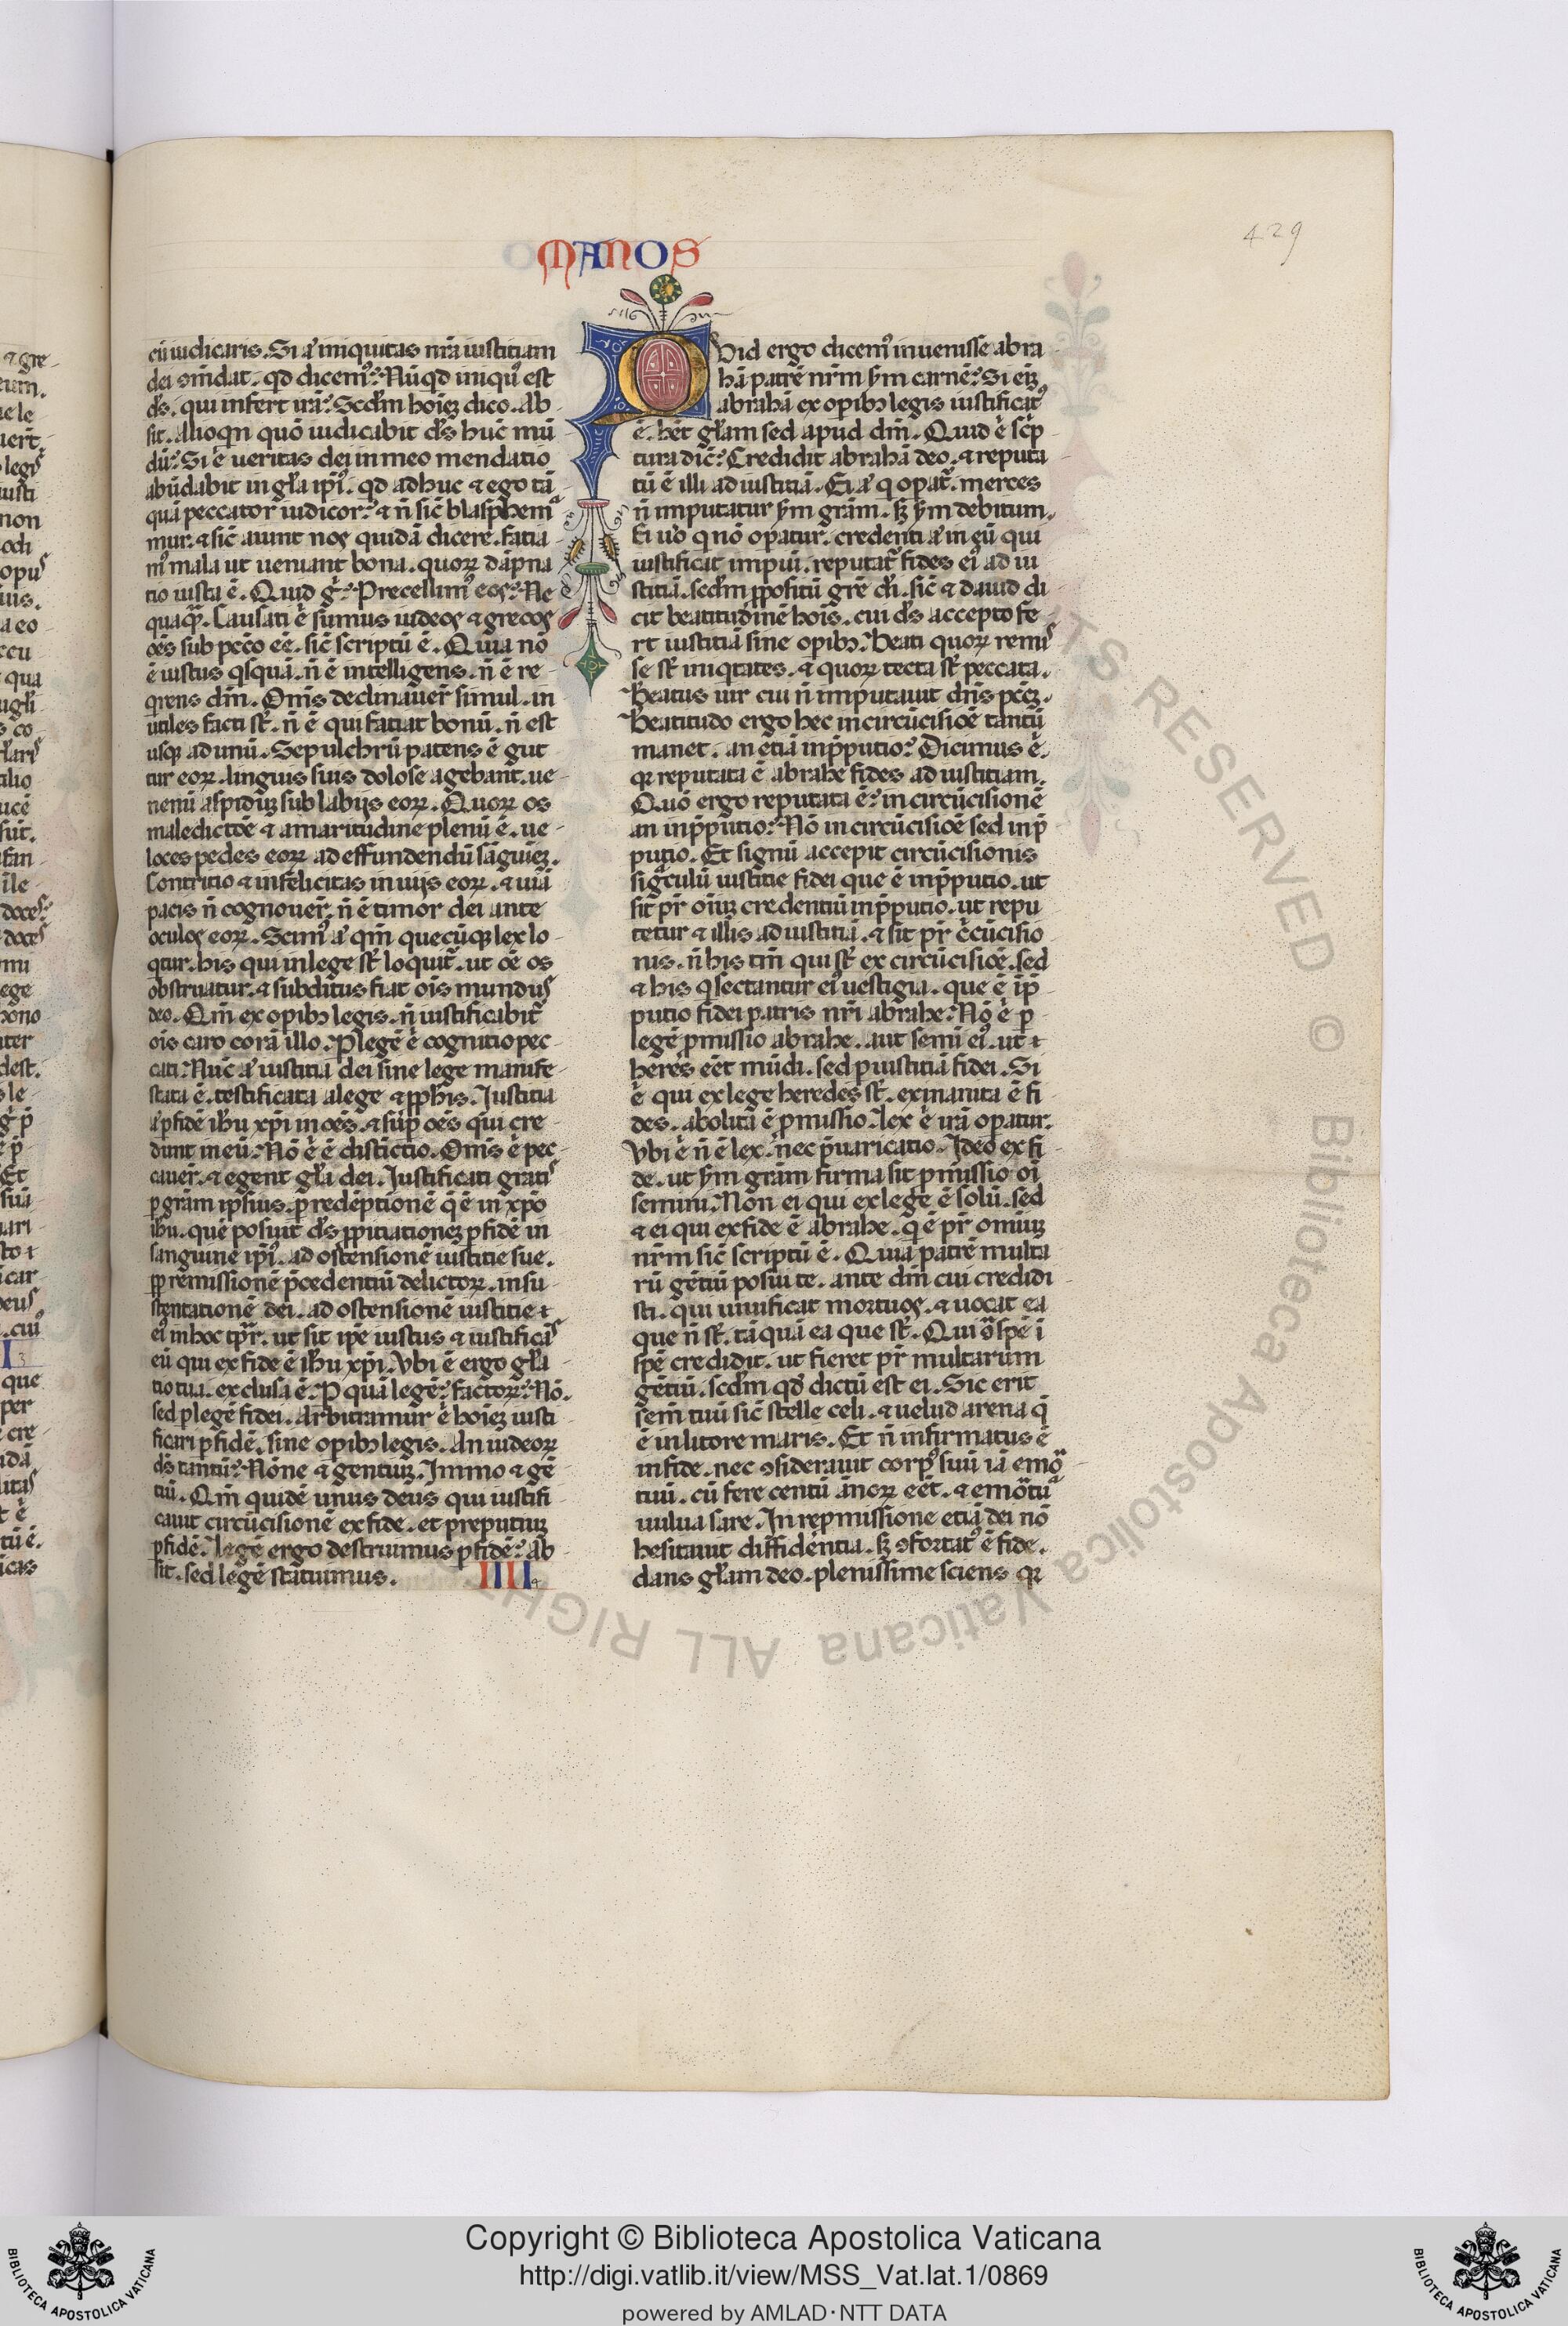 MANOS
429
cū iudicaris. Si aͣ iniquitas nr̄a iustitiam
dei 9mēdat. qd̄ dicemꝰ? Nūqd iniquꝰ est
ds̄. qui infert irā? Scdm̄ hoīeꝫ dico. Ab
sit. Alioqn̄ quō iudicabit ds̄ huc̄ mū
dū? Si ē ueritas dei in meo mendatio
abūdabit in gl̄a ipīꝰ. qd̄ adhuc ⁊ ego tā
quā peccator iudicor? ⁊ n̄ sic̄ blasphemͣ
mur. ⁊ sic̄ aiunt nos quidā dicere. Fatia
mꝰ mala ut ueniant bona. quoꝝ dāpna
tio iusta ē. Quid gͥ? Precellimꝰ eos? Ne
quaqͣꝫ. Causati ē sumus iudeos ⁊ grecos
oēs sub pcc̄o eē. sic̄ scriptū ē. Quia nō
ē iustus qͥsquā. n̄ ē intelligens. n̄ ē re
qͥrens dm̄. Oms̄ declinauer̄ simul. in
utiles facti st̄. n̄ ē qui fatiat bonū. n̄ est
usqꝫ ad unū. Sepulchrū patens ē gut
tur eoꝝ. linguis suis dolose agebant. ue
nenū aspiduꝫ sub labijs eoꝝ. Quoꝝ os
maledictōe ⁊ amaritudine plenū ē. ue
loces pedes eoꝝ ad effundendū sāguīeꝫ.
Contritio ⁊ infelicitas in uijs eoꝝ. ⁊ uiā
pacis n̄ cognouer̄. n̄ ē timor dei ante
oculos eoꝝ. Scimꝰ aͣ qm̄ quecūqꝫ lex lo
qͥtur. his qui in lege st̄ loquit̄. ut oē os
obstruatur. ⁊ subditus fiat oīs mundus
deo. Qm̄ ex opibꝫ legis. n̄ iustificabit̄
oīs caro corā illo. Ꝑ legē ē cognitio pec
cati. Nūc aͣ iustitia dei sine lege manife
stata ē. testificata a lege ⁊ ꝓphis. Iustitia
aͣ ꝑ fidē ih̄u xp̄i in oēs. ⁊ sup̄ oēs qui cre
dunt in eū. Nō ē ē distīctio. Oms̄ ē pec
cauer̄. ⁊ egent gl̄a dei. Iustificati gratis
ꝑ grām ipsius. ꝑ redēptionē q̄ ē in xp̄o
ih̄u. quē posuit ds̄ ꝓpitiationeꝫ ꝑ fidē in
sanguine ipīꝰ. ad ostensionē iustitie sue.
ꝓp̄ remissionē p̄cedentiū delictoꝝ. in su
stentatione dei. ad ostensionē iustitie
eiꝰ in hoc tp̄r̄. ut sit ip̄e iustus ⁊ iustificās
eū qui ex fide ē ih̄u xp̄i. Vbi ē ergo gl̄a
tio tua. exclusa ē. Ꝑ quā legē? factoꝝ? Nō.
sed ꝑ legē fidei. Arbitramur ē hoīeꝫ iusti
ficari ꝑ fidē. sine opibꝫ legis. An iudeoꝝ
ds̄ tantū? Nōne ⁊ gentiuꝫ. Immo ⁊ gē
tiū. Qm̄ quidē unus deus qui iustifi
cauit circūcisionē ex fide. et preputiuꝫ
ꝑ fidē. lege ergo destruimus ꝑ fidē? Ab
sit. sed legē statuimus. IIII
Qvid ergo dicemꝰ inuenisse abra
hā patrē nrm̄ sm̄ carnē? Si eiꝫ
abrahā ex opibꝫ legis iustificatꝰ
ē. hēt gl̄am sed apud dm̄. Quid ē sc̄p
tura dic̄? Credidit abrahā deo. ⁊ reputa
tū ē illi ad iustitiā. Ei aͣ qͥ opat̄. merces
n̄ imputatur sm̄ grām. sꝫ sm̄ debitum.
Ei uͦo qͥ nō opatur. credenti aͣ in eū qui
iustificat impiū. reputat̄ fides eiꝰ ad iu
stitiā. scdm̄ ꝓpositū grē di. sic̄ ⁊ dauid di
cit beatitudinē hoīs. cui ds̄ accepto fe
rt iustitiā sine opibꝫ. Beati quoꝝ remis
se st̄ iniqͥtates. ⁊ quoꝝ tecta st̄ peccata.
Beatus uir cui n̄ imputauit dn̄s pcc̄ꝫ.
Beatitudo ergo hec in circūcisiōe tantū
manet. an etiā in p̄putio? Dicimus ē.
qꝛ reputata ē abrahe fides ad iustitiam.
Quō ergo reputata ē? in circūcisionē
an in p̄putio? Nō in circūcisiōe sed in p̄
putio. Et signū accepit circūcisionis
signͣculū iustitie fidei que ē in p̄putio. ut
sit pr̄ oīuꝫ credentiū in p̄putio. ut repu
tetur ⁊ illis ad iustitiā. ⁊ sit pr̄ cͥcūcisio
nis. n̄ his tm̄ qui st̄ ex circūcisiōe. sed
⁊ his qͥ sectantur eiꝰ uestigia. que ē i p̄
putio fidei patris nr̄i abrahe. Nō ē ꝑ
legē ꝓmissio abrahe. aut semī eiꝰ. ut
heres eēt mūdi. sed ꝑ iustitiā fidei. Si
ē qui ex lege heredes st̄. exinanita ē fi
des. abolita ē ꝓmissio. lex ē irā opatur.
Vbi ē n̄ ē lex. nec p̄uaricatio. Ideo ex fi
de. ut sm̄ grām firma sit ꝓmissio oī
semini. Non ei qui ex lege ē solū. sed
⁊ ei qui ex fide ē abrahe. qͥ ē pr̄ omiuꝫ
nrm̄ sic̄ scriptū ē. Quia patrē multa
rū gētiū posui te. ante dm̄ cui credidi
sti. qui uiuificat mortuos. ⁊ uocat ea
que n̄ st̄. tāquā ea que st̄. Qui 9ͣ spē ī
spē credidit. ut fieret pr̄ multarum
gētiū. scdm̄ qd̄ dictū est ei. Sic erit
sem̄ tuū sic̄ stelle celi. ⁊ uelud arena q̄
ē in litore maris. Et n̄ infirmatus ē
in fide. nec 9siderauit corpꝰ suū iā emoͬ
tuū. cū fere centū ānoꝝ eēt. ⁊ emoͬtuā
uulua sare. In repmissione etiā dei nō
hesitauit diffidentia. sꝫ 9fortatꝰ ē fide.
dans gl̄am deo. plenissime sciens qꝛ
Copyright © Biblioteca Apostolica Vaticana
http://digi.vatlib.it/view/MSS_Vat.lat.1/0869
powered by AMLAD·NTT DATA
BIBLIOTECA APOSTOLICA VATICANA
BIBLIOTECA APOSTOLICA VATICANA
ALL RIGHTS RESERVED © Biblioteca Apostolica Vaticana